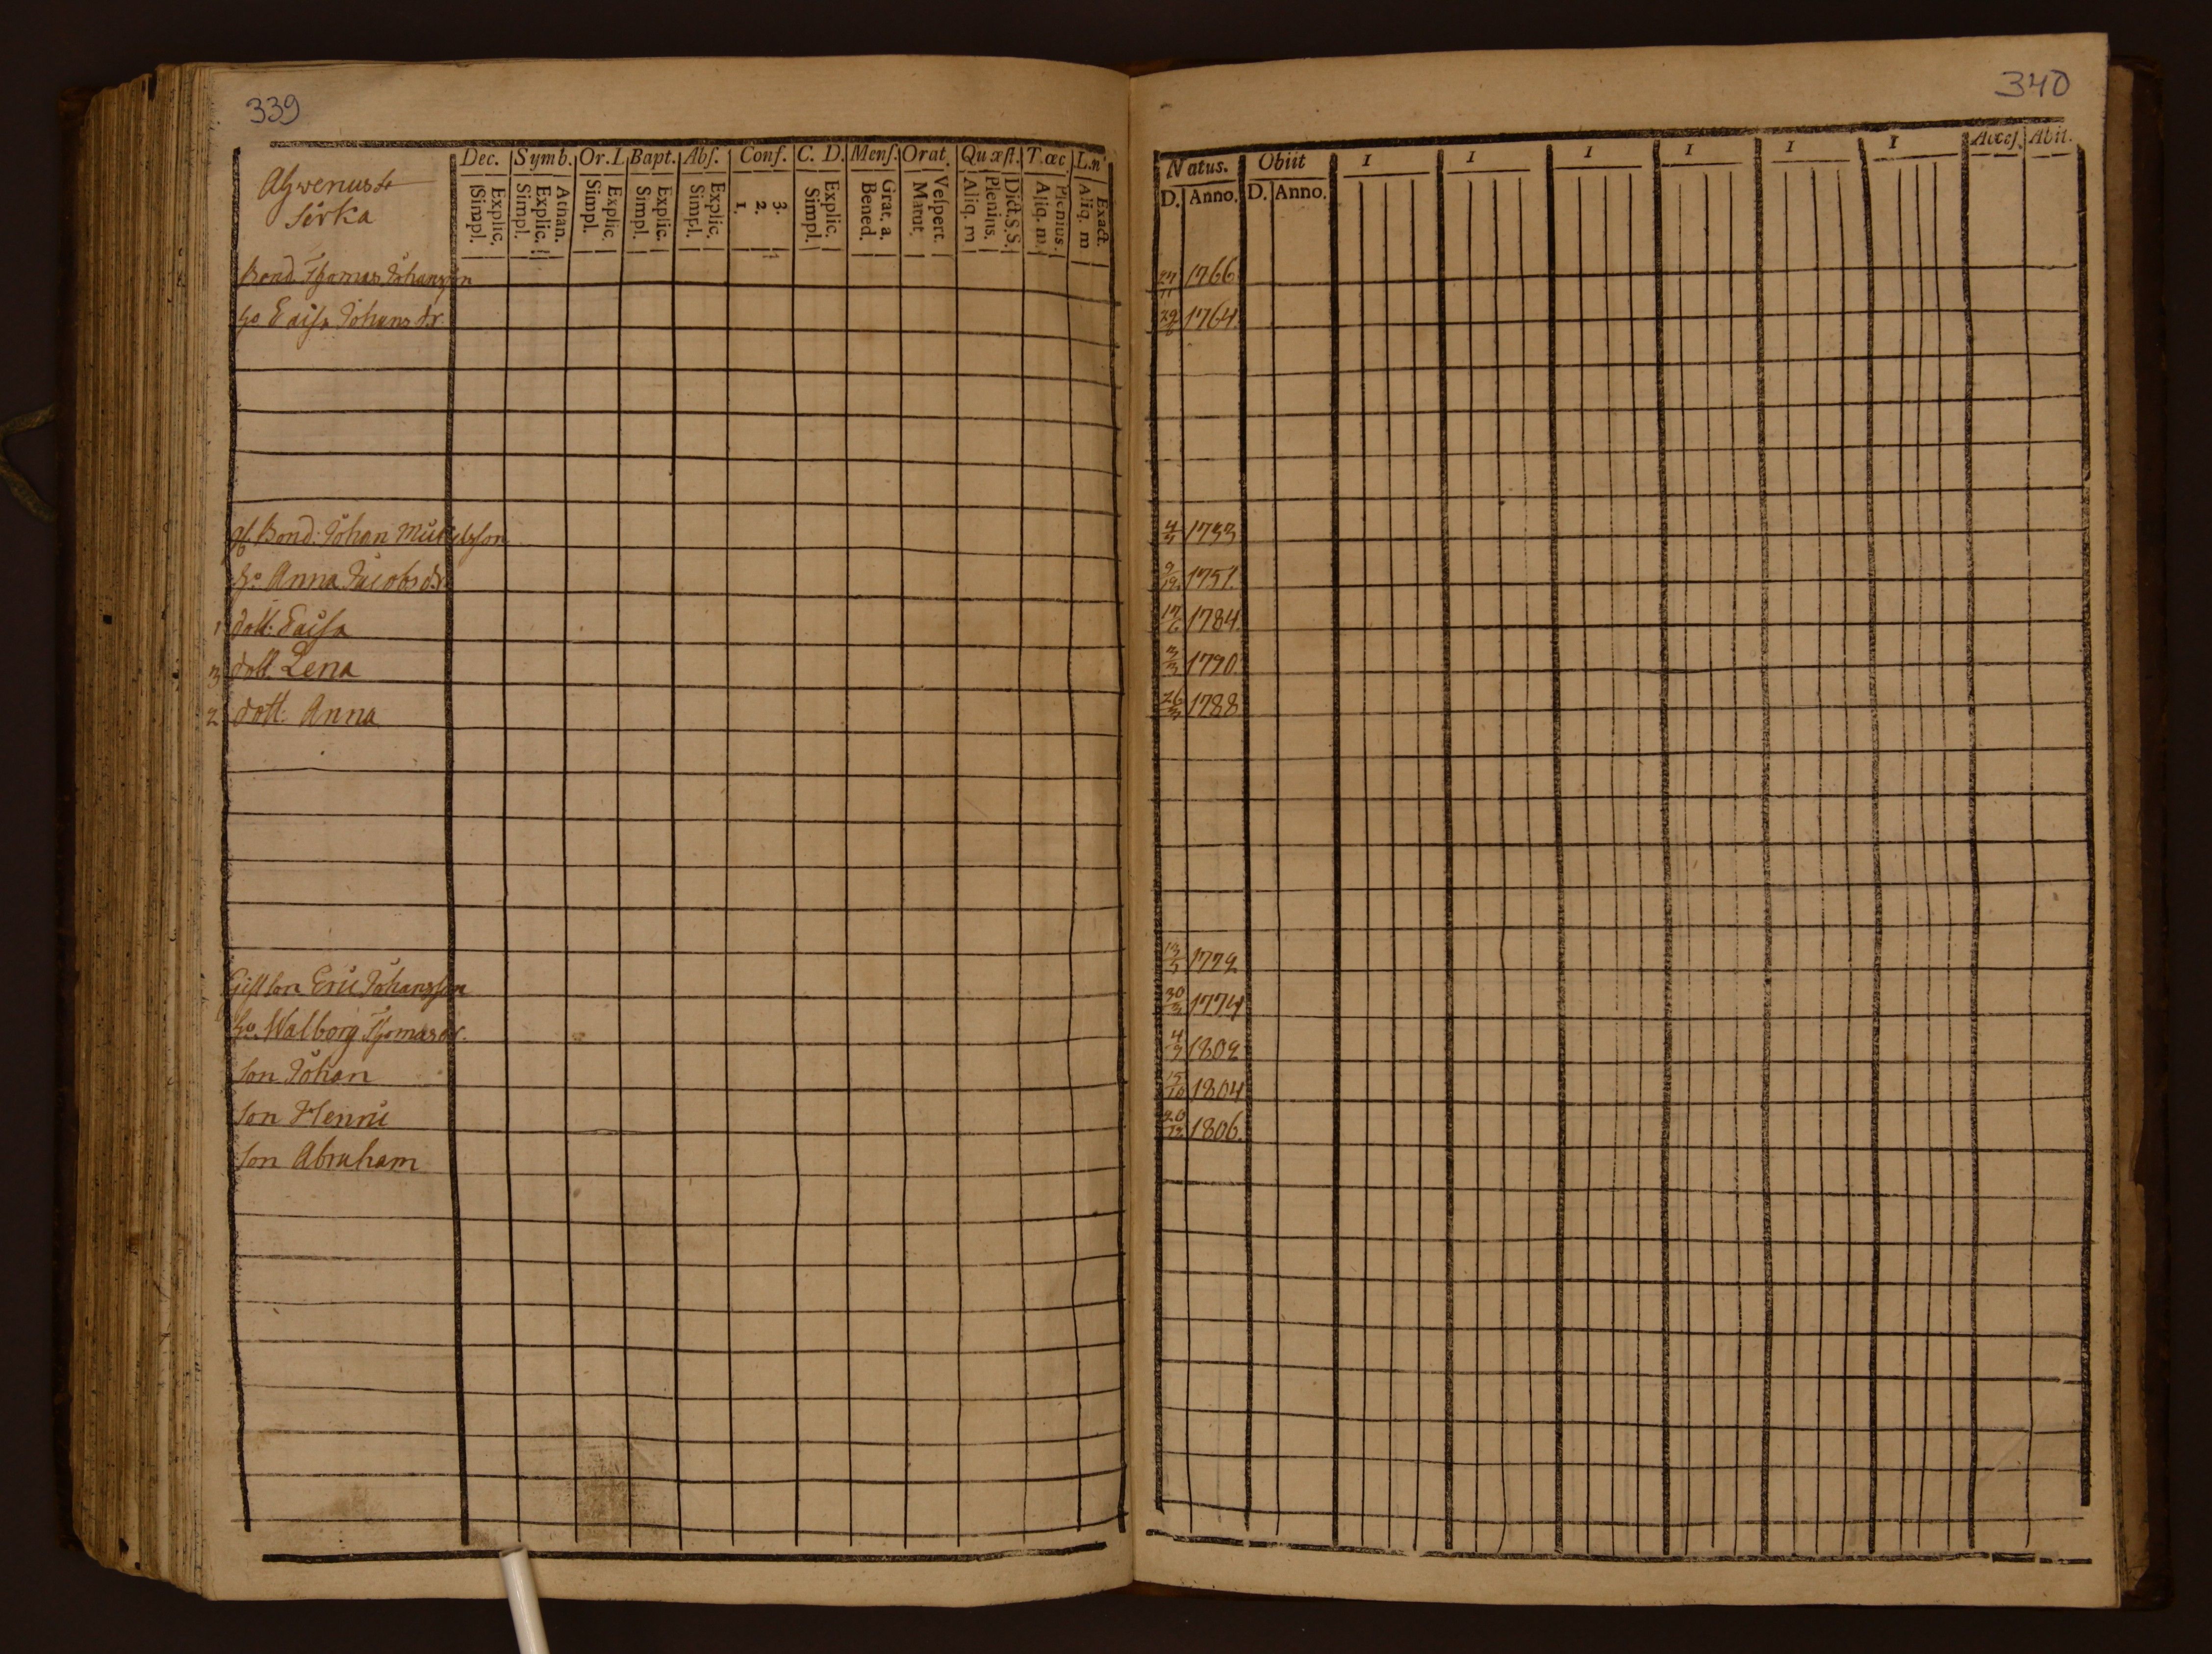 339
340
Dec. Symb. Or. I. Bapt. Abſ. Conf. C. D. Menſ. Orat. Quæſt. T. œc L.n
Simpl. Explic. Simpl. Explic. Athan. Simpl. Explic. Simpl. Explic. Simpl. Explic. 1. 2. 3. Simpl. Explic. Bened. Grat. a. Matut. Veſpert. Aliq. m Plenius. Dict. S. S. Aliq. m. Plenius. Aliq. m Exact.
Sirka
Natus. Obiit I I I I I I Acceſ. Abit.
D. Anno. D. Anno.
Bond. Thomas Johansson 24/11 1766
ho Caisa Johans dr. 29/6 1764
Bond. Johan Michelsson 1733
ho Anna Jacobs dr 9/12 1751.
1 dott. Caisa 17/6 1784.
3 dott. Lena 3/3 1790.
2 dott. Anna 26/3 1788
Gift son Eric Johansson 13/5 1772
ho Walborg Thomasdr. 30/3 1774
son Johan 4/9 1802
son Henric 15/10 1804
son Abraham 20/12 1806.